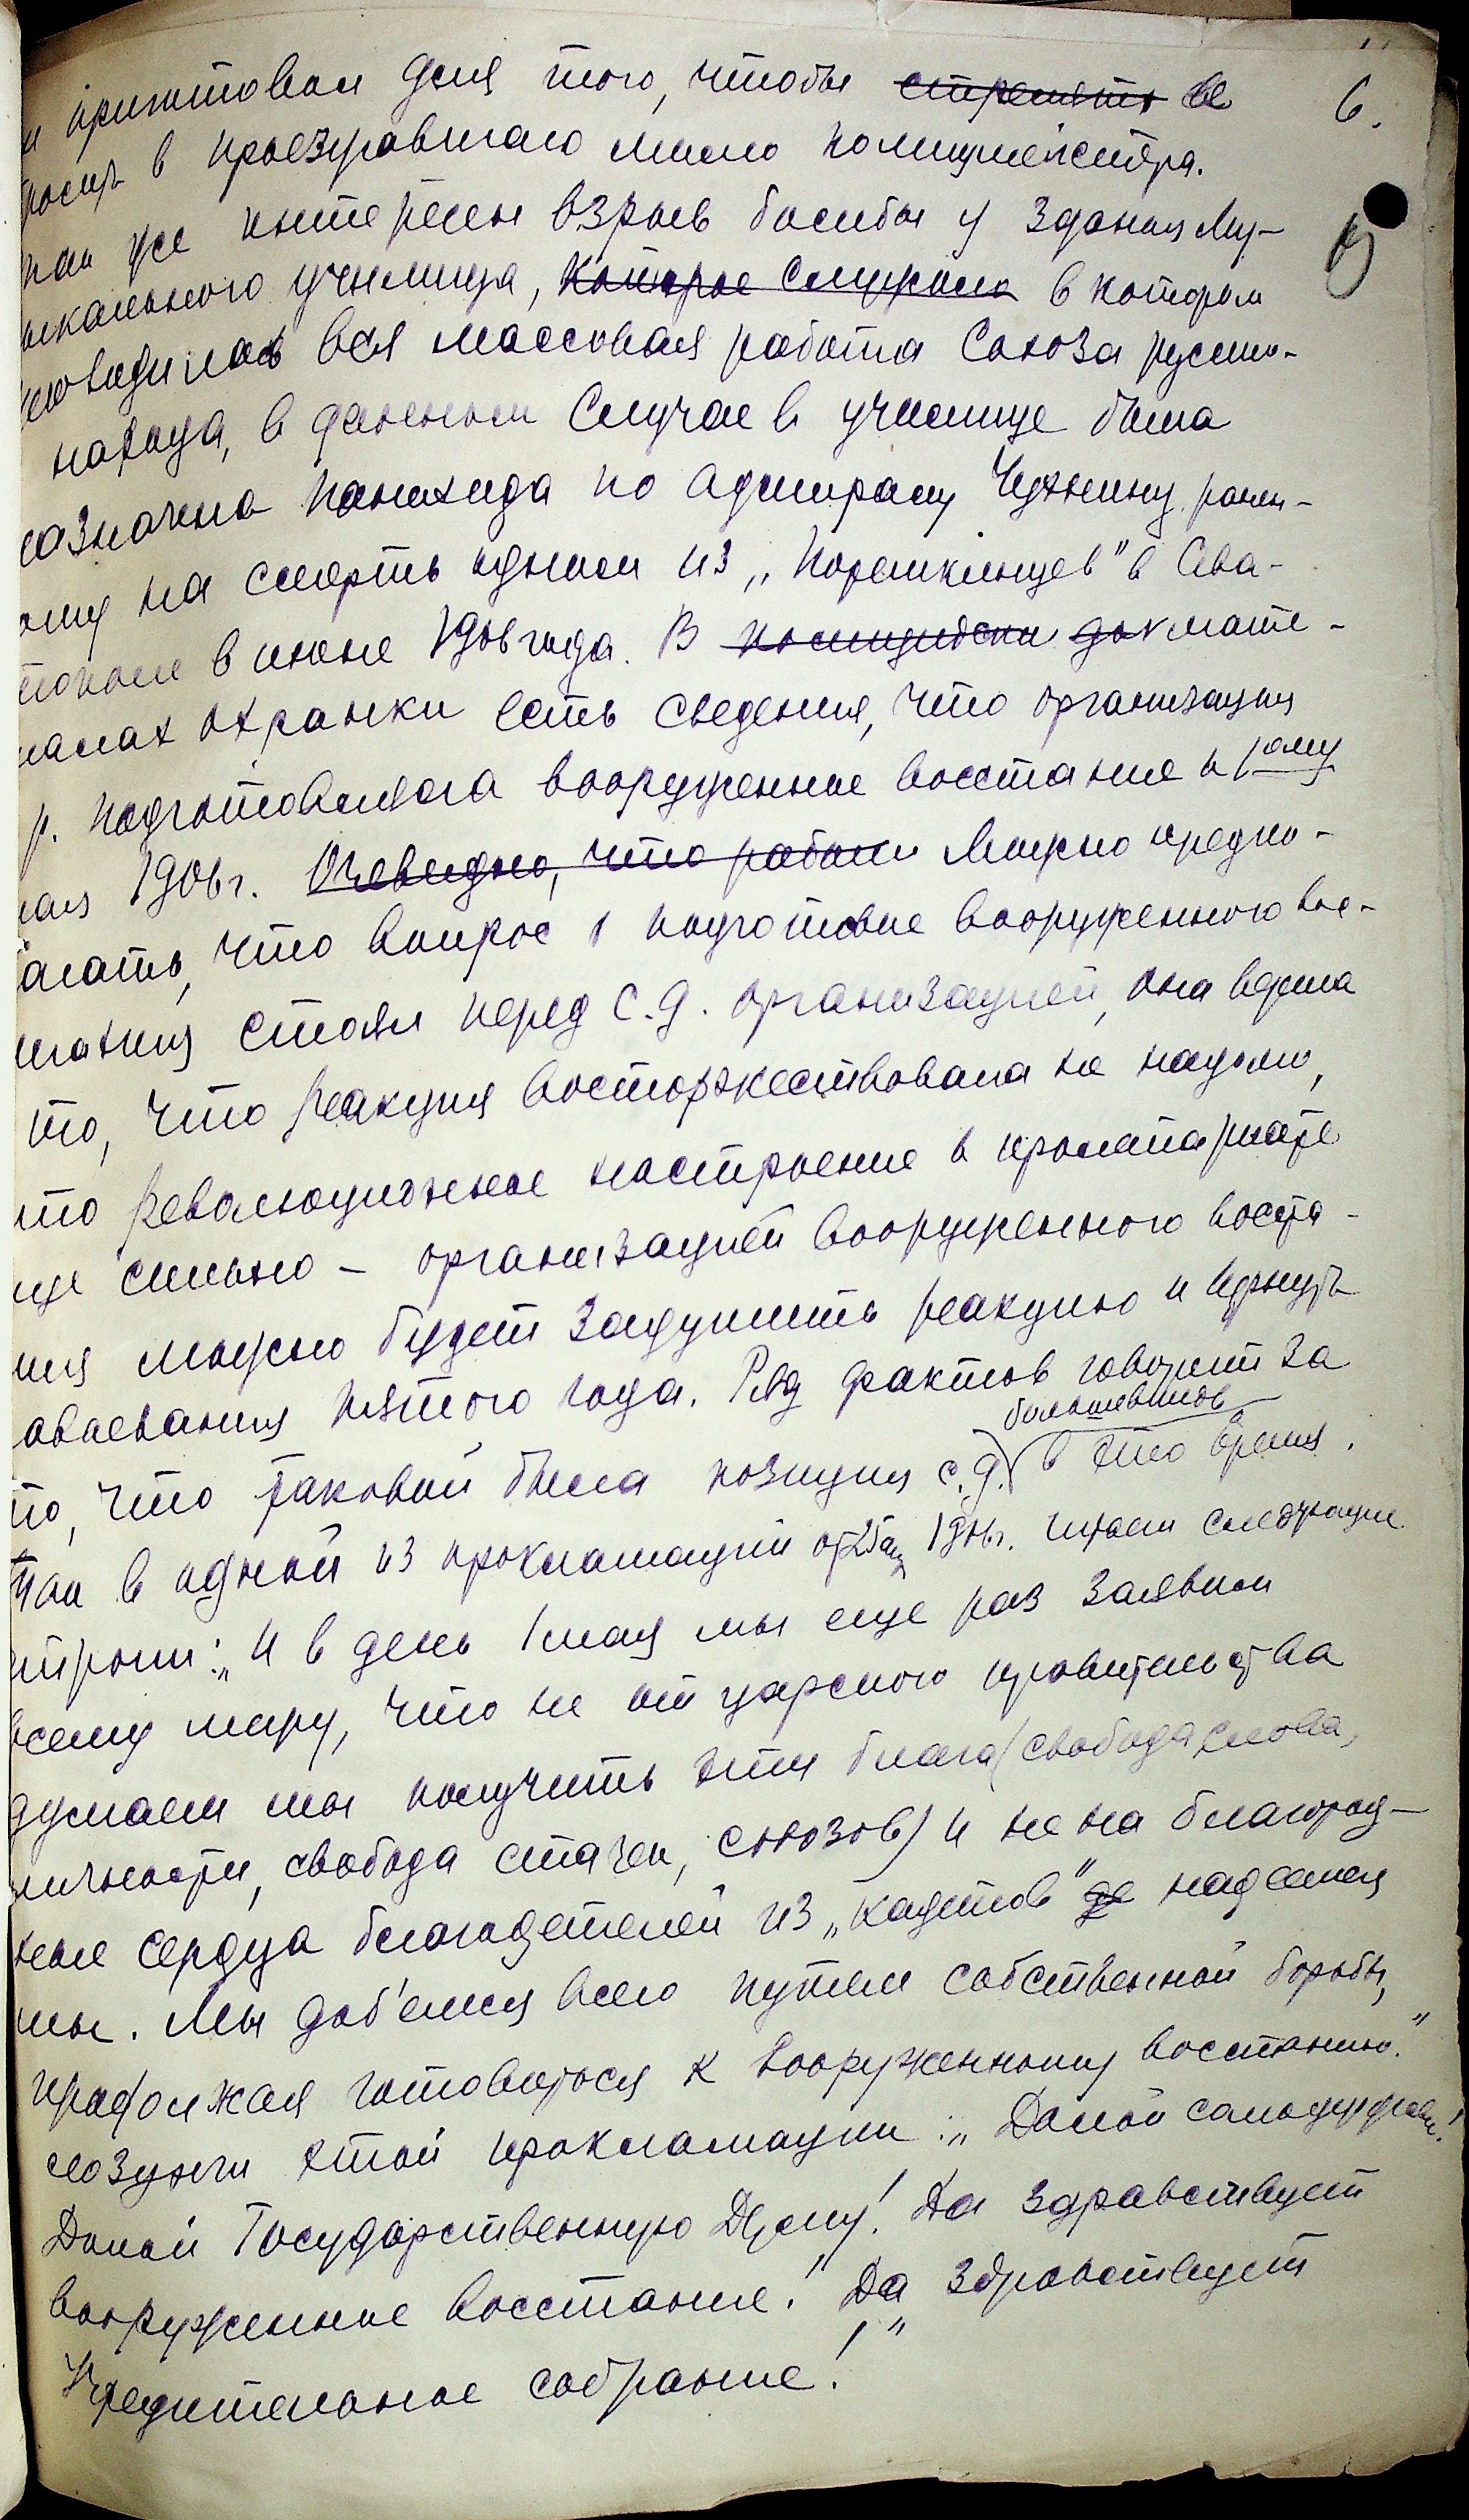 6.
и приготовил для того, чтобы ~~стрелять~~ ее
росить в проезжавшаго мимо полицмейстера.
так же интересен взрыв бомбы у здания Му-
ыкального училища, ~~которое служило~~ в котором
роводилась вся массовая работа Союза русско-
народа, в данном случае в училище была
назначена панихида по адмиралу Чухнину ранен-
ому на смерть одним из „Потемкинцев" в Сева-
тополе в июне 1906 года. В ~~полицейски док~~ мате-
иалах охранки есть сведения, что организация
р. подготовляла вооруженное восстание к 1ому
мая 1906 г. ~~Очевидно, что работ~~ Можно предпо-
лагать, что вопрос о подготовке вооруженного вос-
тания стоял перед с.д. организацией, она видела
то, что реакция восторжествовала не надолго,
что революционное настроение в пролетариате
еще сильно – организацией вооруженного восста-
ния можно будет задушить реакцию и вернуть
завоевания пятого года. Ряд фактов говорит за
большевиков
то, что таковой была позиция с.д. в это время.
Так в одной из прокламаций от 25 ап 1906 г. читаем следующие
строки: „И в день 1 мая мы еще раз заявим
всему миру, что не от царского правительства
думаем мы получить эти блага (свобода слова,
личности, свобода стачек, союзов) и не на благород-
ные сердца благодетелей из „кадетов" надеемся
мы. Мы доб'емся всего путем собственной борьбы,
продолжая готовиться к вооруженному восстанию."
лозунги этой прокламации: „Долой самодержавие!
Долой Государственную Думу! Да здравствует
вооруженное восстание! Да здравствует
Учредительное собрание!"